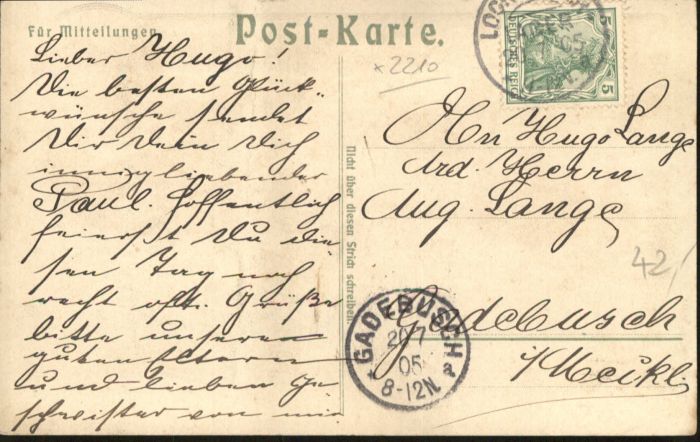 Für Mitteilungen
Post-Karte.
Lieber Hugo!
Die besten Glück-
wünsche sendet
Dir Dein Dich
inniglicbender
Paul. Hoffentlich
feierst Du die-
sen Tag noch
recht oft. Grüße
bitte unsere
guten Eltern
und lieben Ge
schwister von mir
Nicht über diesen Strich schreiben.
x2210
5
5
DEUTSCHES REICH
An Hugo Lange
Adr. Herrn
Aug. Lange
42/
Gadebusch
i/Meckl.
GADEBUSCH
20 7
05
8-12N.